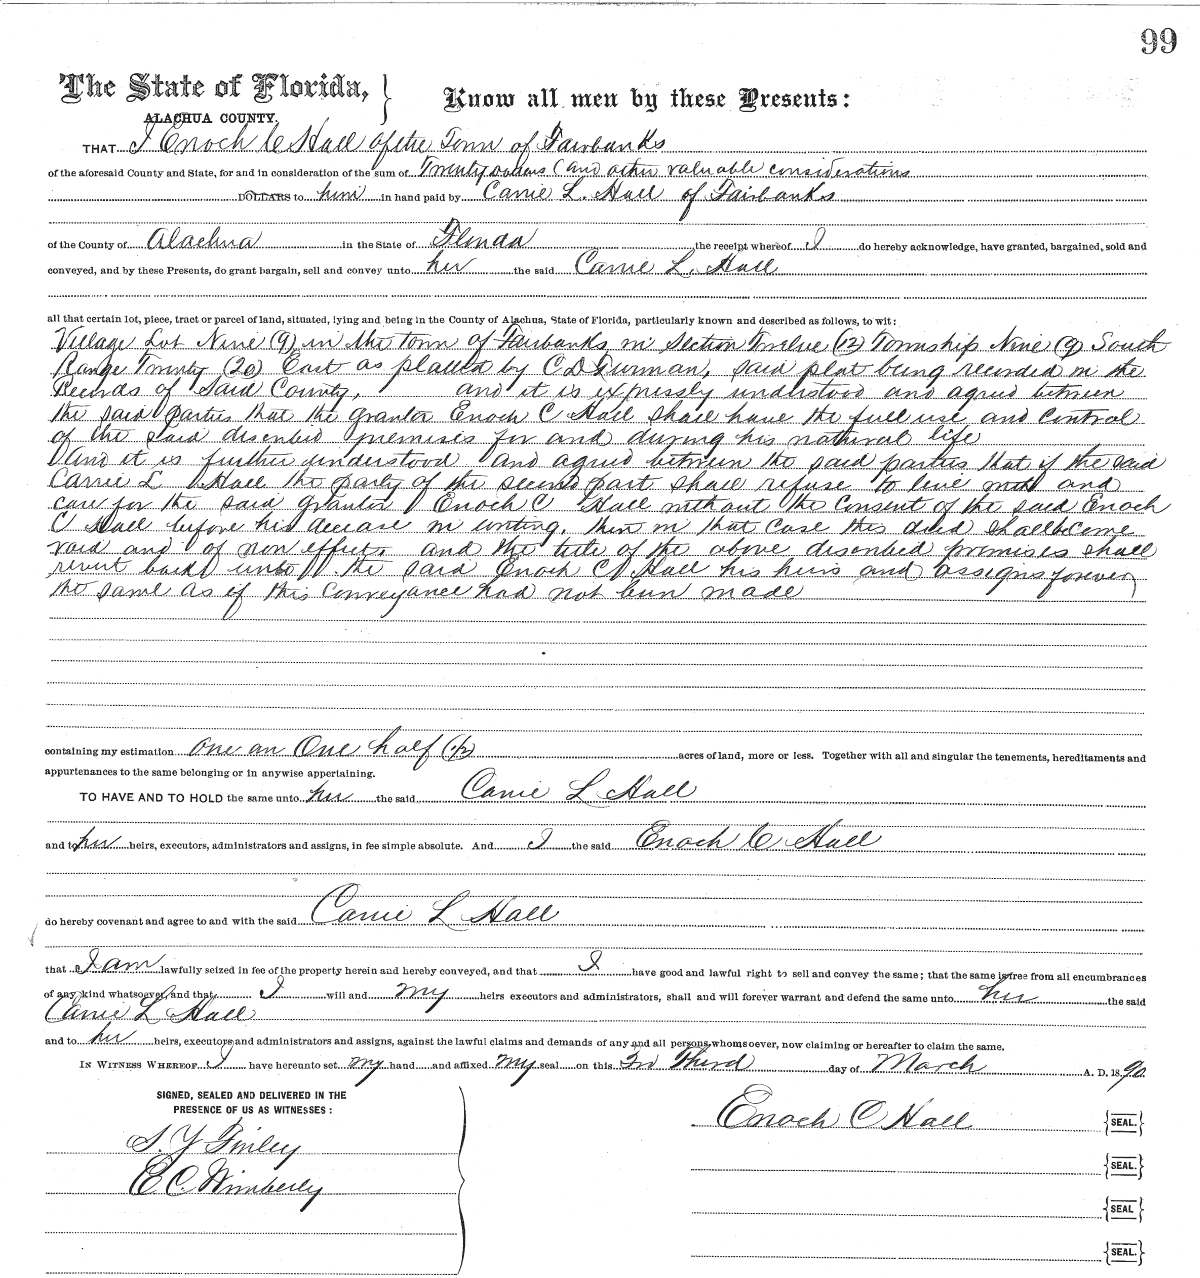 99
The State of Florida, } Know all men by these Presents:
ALACHUA COUNTY.
THAT I Enoch C Hall of the Town of Fairbanks
of the aforesaid County and State, for and in consideration of the sum of Twenty dollars (and other valuable considerations
DOLLARS to him in hand paid by Carrie L. Hall of Fairbanks
of the County of Alachua in the State of Florida the receipt whereof I do hereby acknowledge, have granted, bargained, sold and
conveyed, and by these Presents, do grant bargain, sell and convey unto her the said Carrie L. Hall
all that certain lot, piece, tract or parcel of land, situated, lying and being in the County of Alachua, State of Florida, particularly known and described as follows, to wit:
Village Lot Nine (9) in the town of Fairbanks in Section Twelve (12) Township Nine (9) South
Range Twenty (20) East as platted by C D Furman, said plat being recorded in the
Records of Said County, and it is expressly understood and agreed between
the said parties that the grantor Enoch C Hall shall have the full use and control
of the said described premises for and during his natural life
And it is further understood and agreed between the said parties that if the said
Carrie L Hall the party of the second part shall refuse to live with and
care for the said grantor Enoch C Hall without the Consent of the said Enoch
C Hall before his decease in writing, then in that case this deed shall become
void and of non effect, and the title of the above described premises shall
revert back unto the said Enoch C Hall his heirs and assigns forever
the same as if this Conveyance had not been made
containing my estimation one an One half (1/2) acres of land, more or less. Together with all and singular the tenements, hereditaments and
appurtenances to the same belonging or in anywise appertaining.
TO HAVE AND TO HOLD the same unto her the said Carrie L Hall
and to her heirs, executors, administrators and assigns, in fee simple absolute. And I the said Enoch C Hall
do hereby covenant and agree to and with the said Carrie L Hall
that I am lawfully seized in fee of the property herein and hereby conveyed, and that I have good and lawful right to sell and convey the same; that the same is free from all encumbrances
of any kind whatsoever, and that I will and my heirs executors and administrators, shall and will forever warrant and defend the same unto her the said
Carrie L Hall
and to her heirs, executors and administrators and assigns, against the lawful claims and demands of any and all persons whomsoever, now claiming or hereafter to claim the same.
IN WITNESS WHEREOF I have hereunto set my hand and affixed my seal on this Third day of March A. D. 1890
SIGNED, SEALED AND DELIVERED IN THE
PRESENCE OF US AS WITNESSES:
Enoch C Hall {SEAL.}
S. Y Finley
E C Wimberly
{SEAL.}
{SEAL}
{SEAL.}